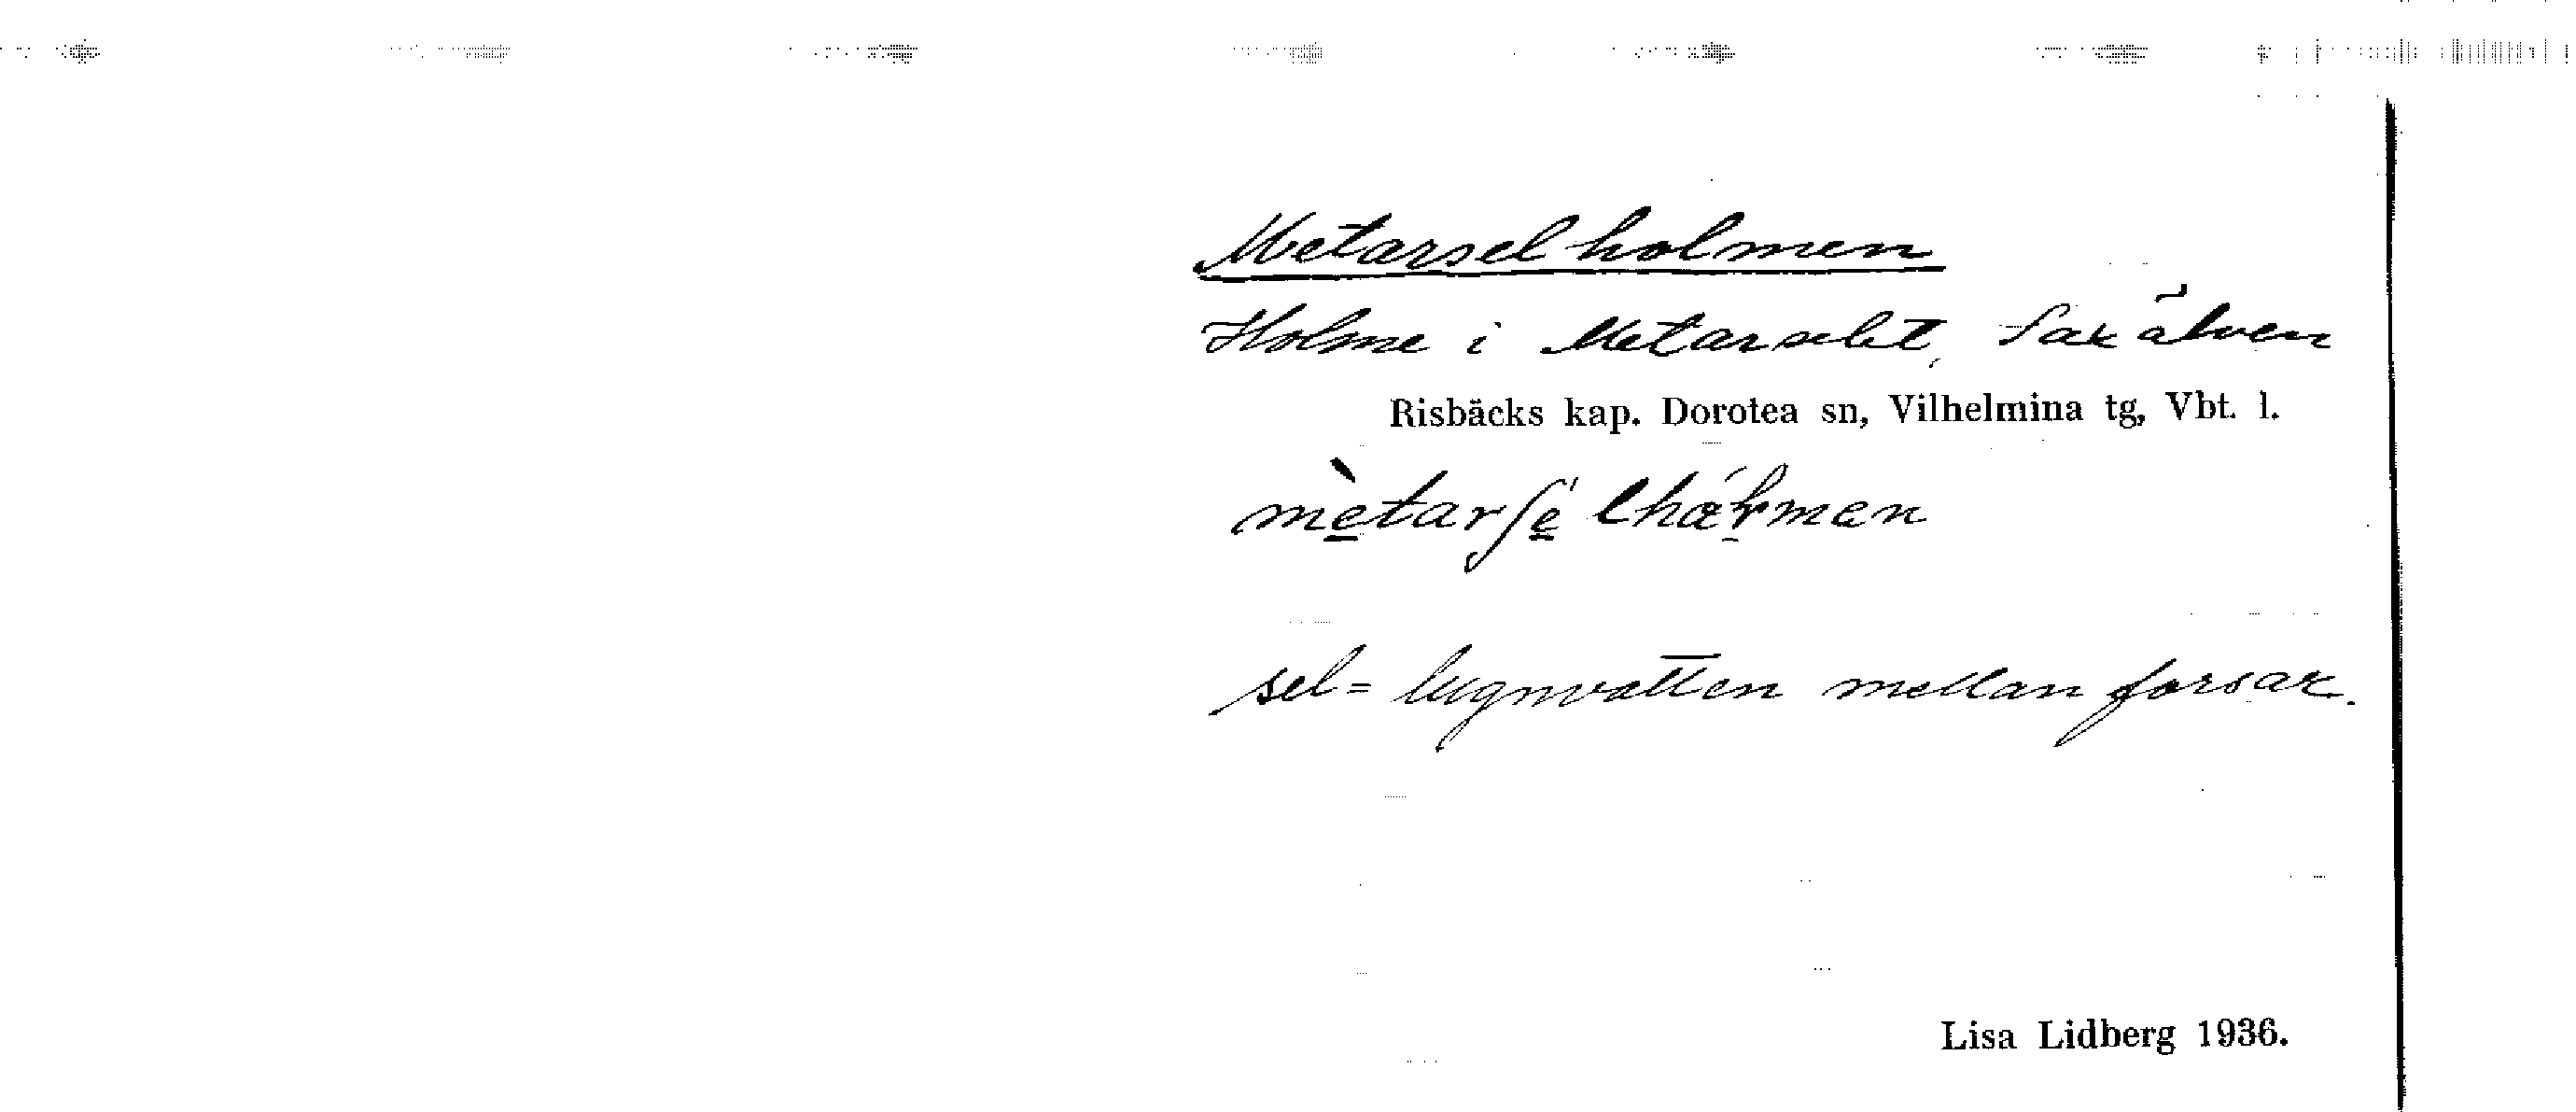 Metarselholmen
Holme i Metarselet, Saxälven
Risbäcks kap. Dorotea sn, Vilhelmina tg, Vbt. l.
sel = lugnvatten mellan forsar.
Lisa Lidberg 1936.